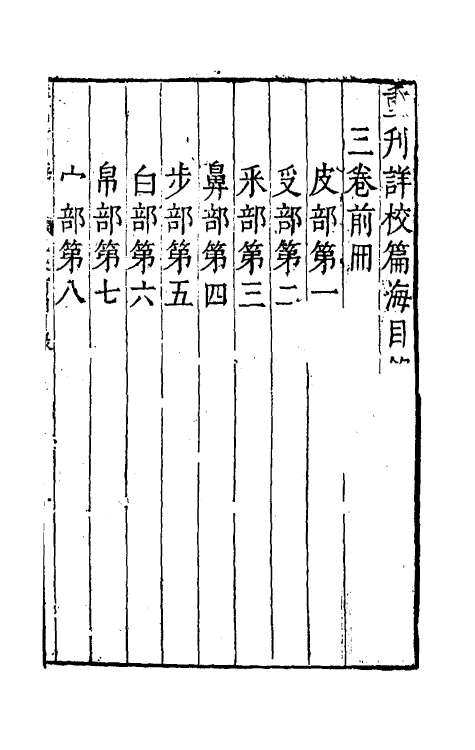 重刊詳校篇海目錄
三卷前冊
皮部第一
𠬪部第二
釆部第三
鼻部第四
步部第五
白部第六
帛部第七
宀部第八